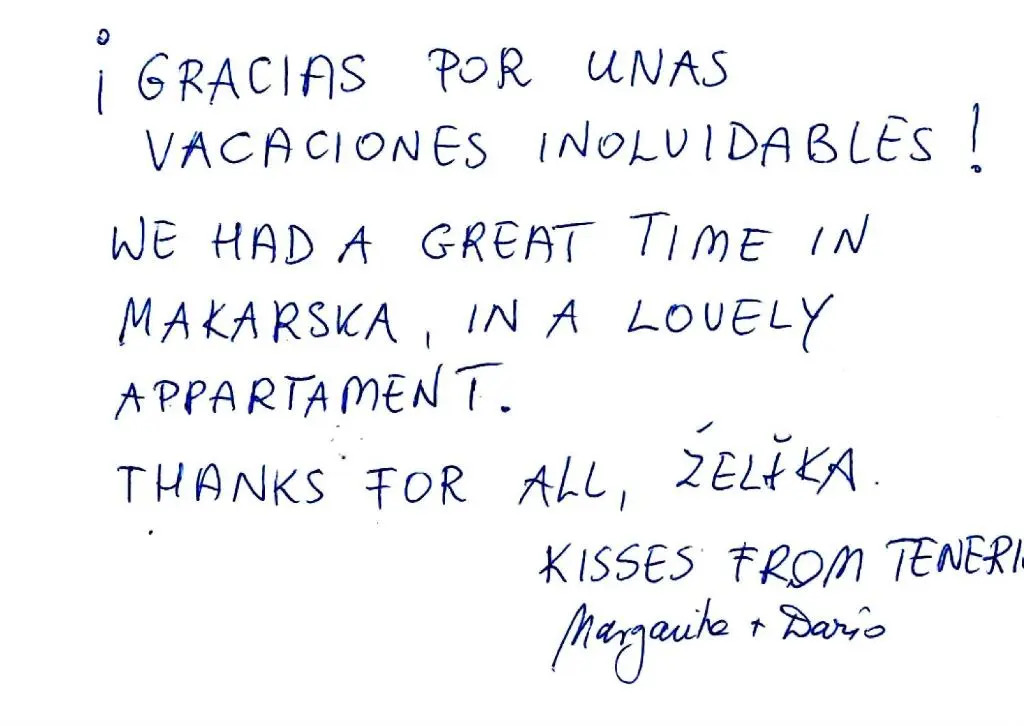 ¡GRACIAS POR UNAS
VACACIONES INOLVIDABLES!
WE HAD A GREAT TIME IN
MAKARSKA, IN A LOVELY
APPARTAMENT.
THANKS FOR ALL,
KISSES FROM
Margarita + Dario